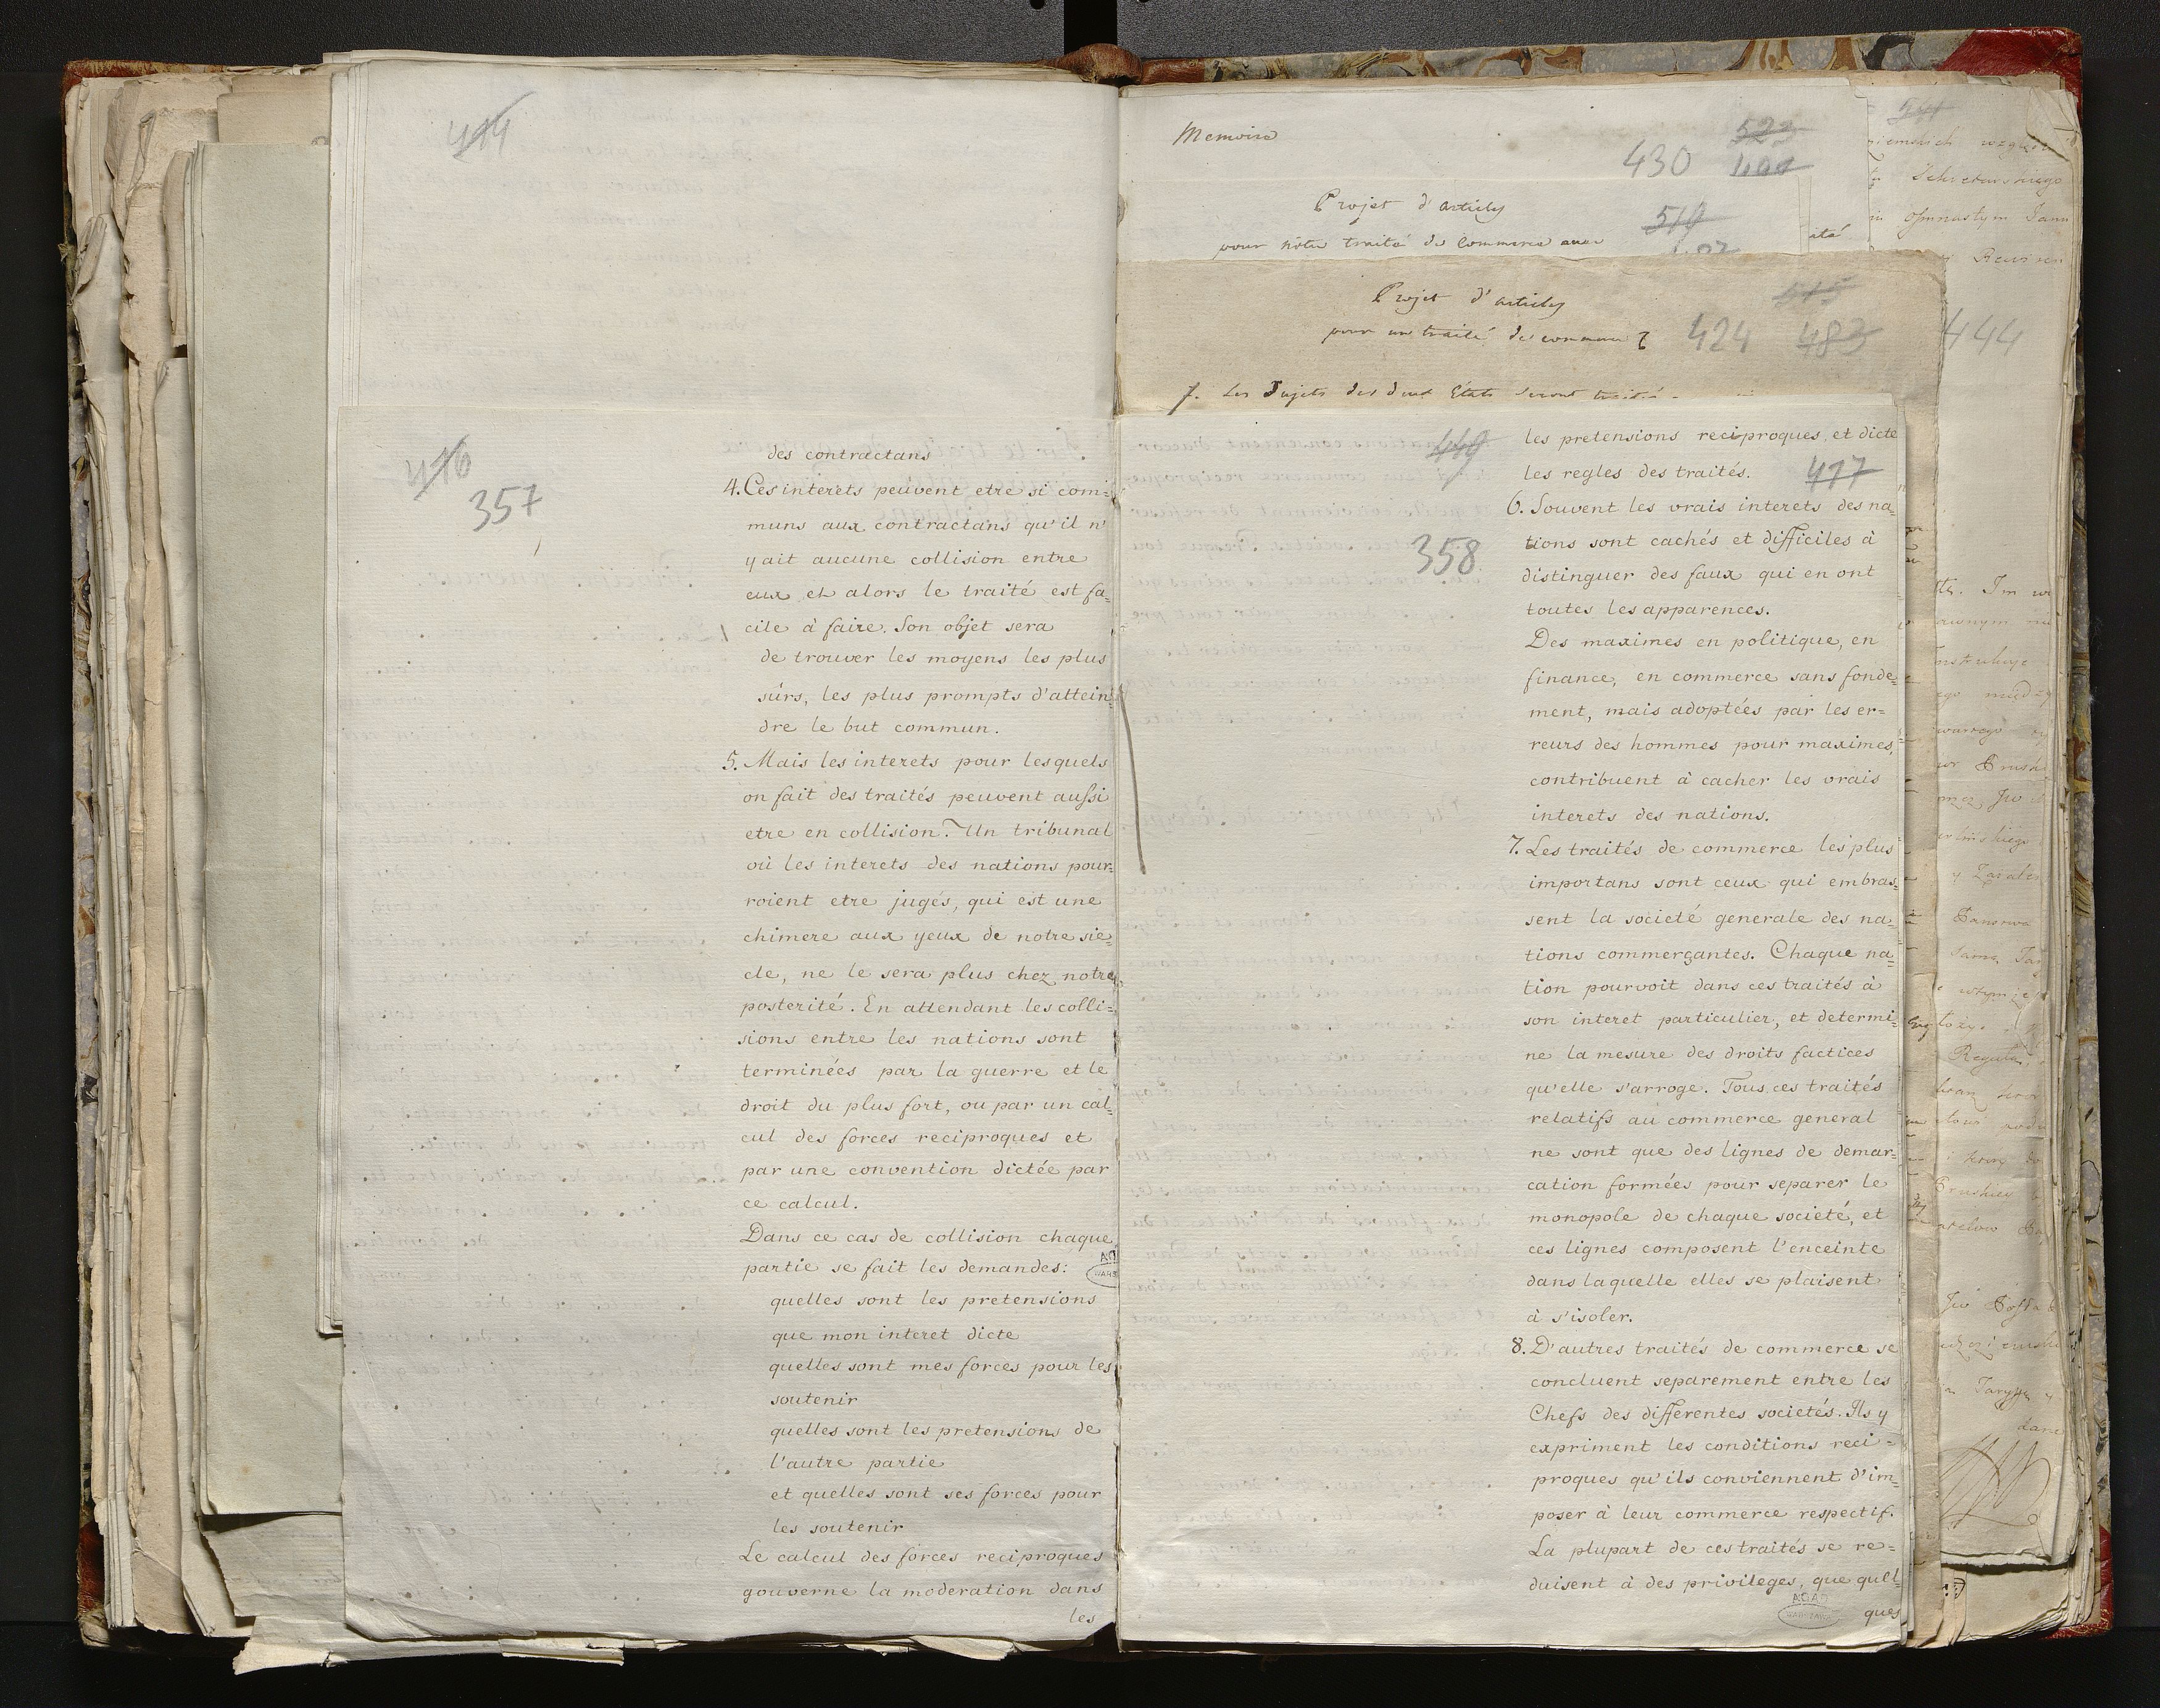 414
416
357
des contractans
4. Ces interets peuvent etre si com=
muns aux contractans qu'il n'
y ait aucune collision entre
eux et alors le traité est fa=
cile à faire. Son objet sera
de trouver les moyens les plus
sûrs, les plus prompts d'attein=
dre le but commun.
5. Mais les interets pour lesquels
on fait des traités peuvent aussi
etre en collision. Un tribunal
où les interets des nations pour=
roient etre jugés, qui est une
chimere aux yeux de notre sie=
cle, ne le sera plus chez notre
posterité. En attendant les colli=
sions entre les nations sont
terminées par la guerre et le
droit du plus fort, ou par un cal=
cul des forces reciproques et
par une convention dictée par
ce calcul.
Dans ce cas de collision chaque
partie se fait les demandes:
quelles sont les pretensions
que mon interet dicte
quelles sont mes forces pour les
soutenir
quelles sont les pretensions de
l'autre partie
et quelles sont ses forces pour
les soutenir
Le calcul des forces reciproques
gouverne la moderation dans
les
Memoire
523
430
Projet d'articles
519
pour nôtre traité de commerce avec
Projet d'articles
515
pour un traité de commerce
424 483
7. Les Sujets des deux Etats seront
444
449
358
les pretensions reciproques, et dicte
les regles des traités.
477
6. Souvent les vrais interets des na=
tions sont cachés et difficiles à
distinguer des faux qui en ont
toutes les apparences.
Des maximes en politique, en
finance, en commerce sans fonde=
ment, mais adoptées par les er=
reurs des hommes pour maximes,
contribuent à cacher les vrais
interets des nations.
7. Les traités de commerce les plus
importans sont ceux qui embras=
sent la societé generale des na=
tions commerçantes. Chaque na=
tion pourvoit dans ces traités à
son interet particulier, et determi=
ne la mesure des droits factices
qu'elle s'arroge. Tous ces traités
relatifs au commerce general
ne sont que des lignes de demar=
cation formées pour separer le
monopole de chaque societé, et
ces lignes composent l'enceinte
dans laquelle elles se plaisent
à s'isoler.
8. D'autres traités de commerce se
concluent separement entre les
Chefs des differentes societés. Ils y
expriment les conditions reci=
proques qu'ils conviennent d'im=
poser à leur commerce respectif.
La plupart de ces traités se re=
duisent à des privileges, que quel=
ques
AGAD